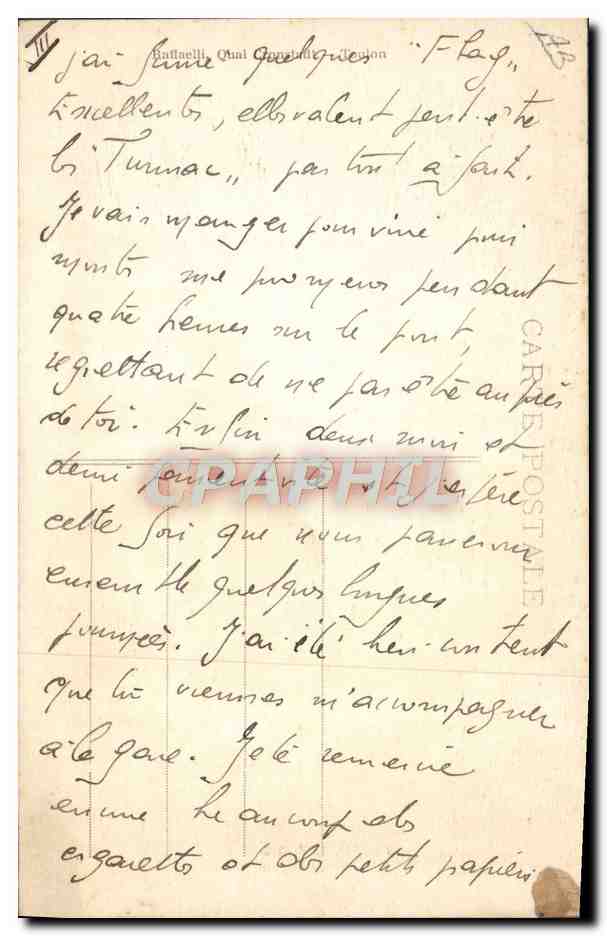 III
AB
Raffaelli, Quai Cronstadt - Toulon
j'ai fumé quelques "Flag"
Excellentes, elles valent peut-être
les "Turmac" pas tout à fait.
Je vais manger pour vivre puis
monter me promener pendant
quatre heures sur le pont,
regrettant de ne pas être auprès
de toi. Enfin deux mois et
demi passent vite et j'espère
cette fois que nous passerons
ensemble quelques longues
journées. J'ai été bien content
que tu viennes m'accompagner
à la gare. Je te remercie
encore beaucoup des
cigarettes et des petits papiers
CARTE POSTALE
CPAPHIL